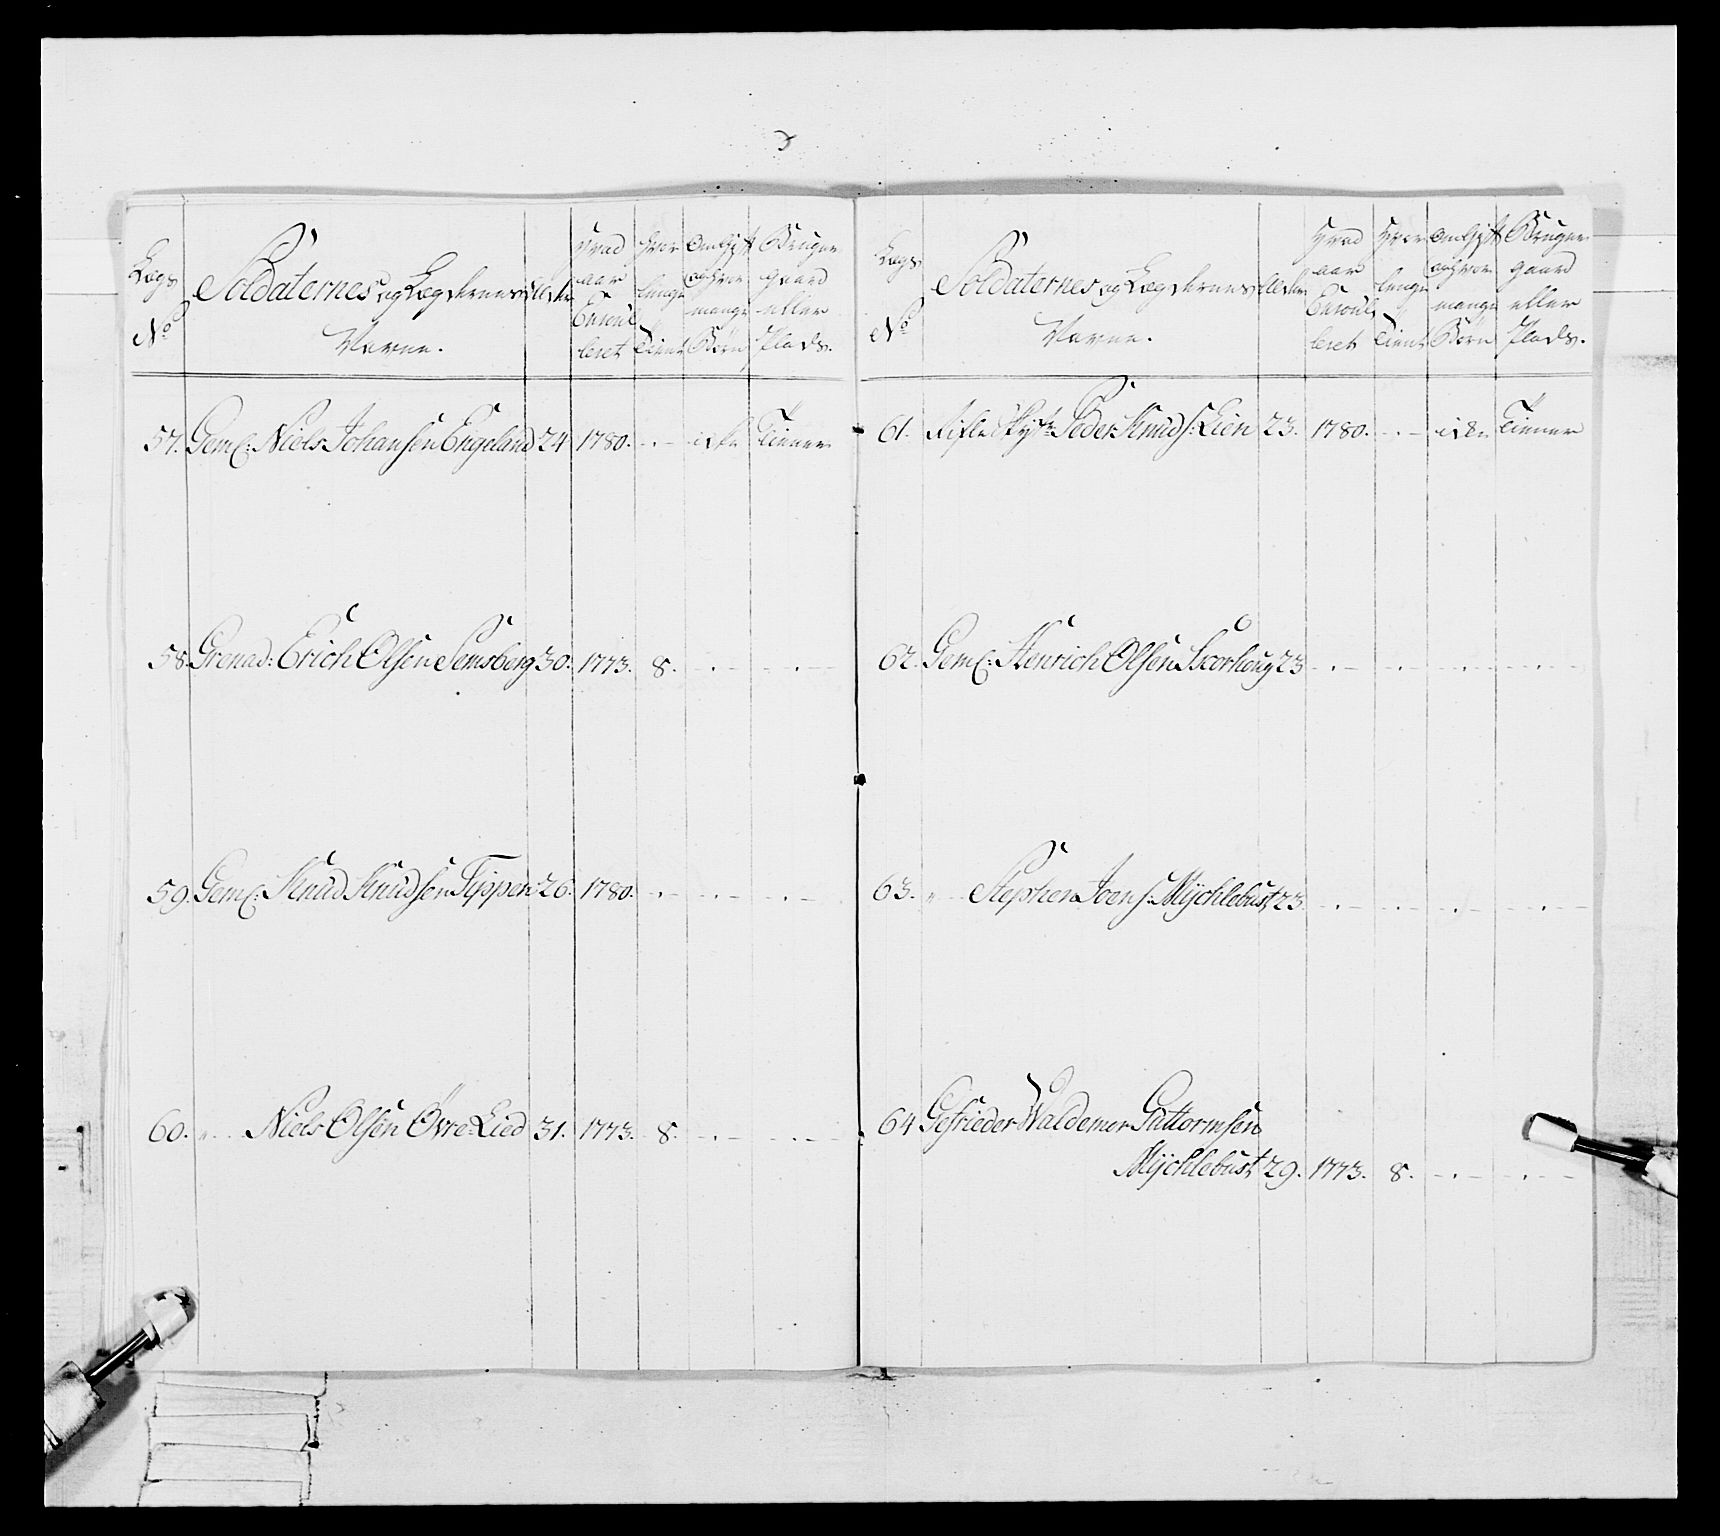 Lægs No
Soldaternes og Lægdernes Navne.
Alder
Hvad aar Enroulleret
Hvor længe Tient
Om Gift og hvor mange Børn
Bruger gaard eller Plads.
57. Gem: Niels Johansen Engeland 24 1780. . – icke Tiener
58. Grenad: Erich Olsen Semsberg 30. 1773. 8. . – . –
59. Gem: Knud Knudsen Tippen 26. 1780. . – . – . –
60. " Niels Olsen Øvre-Lied 31. 1773. 8. . – . –
Lægs No
Soldaternes og Lægdernes Navne.
Alder
Hvad aar Enroulleret
Hvor længe Tient
Om Gift og hvor mange Børn
Bruger gaard eller Plads.
61. Peder Knuds: Lien 23. 1780. . – icke Tiener
62. Gem: Henrich Olsen Scorhoug 23 . – . – . – . –
63. " Stephen Joens: Mÿchlebust 23. . – . – . – . –
64 Gefrieder Waldemer Guttormsen
Mÿchlebust 29. 1773. 8. . – . –